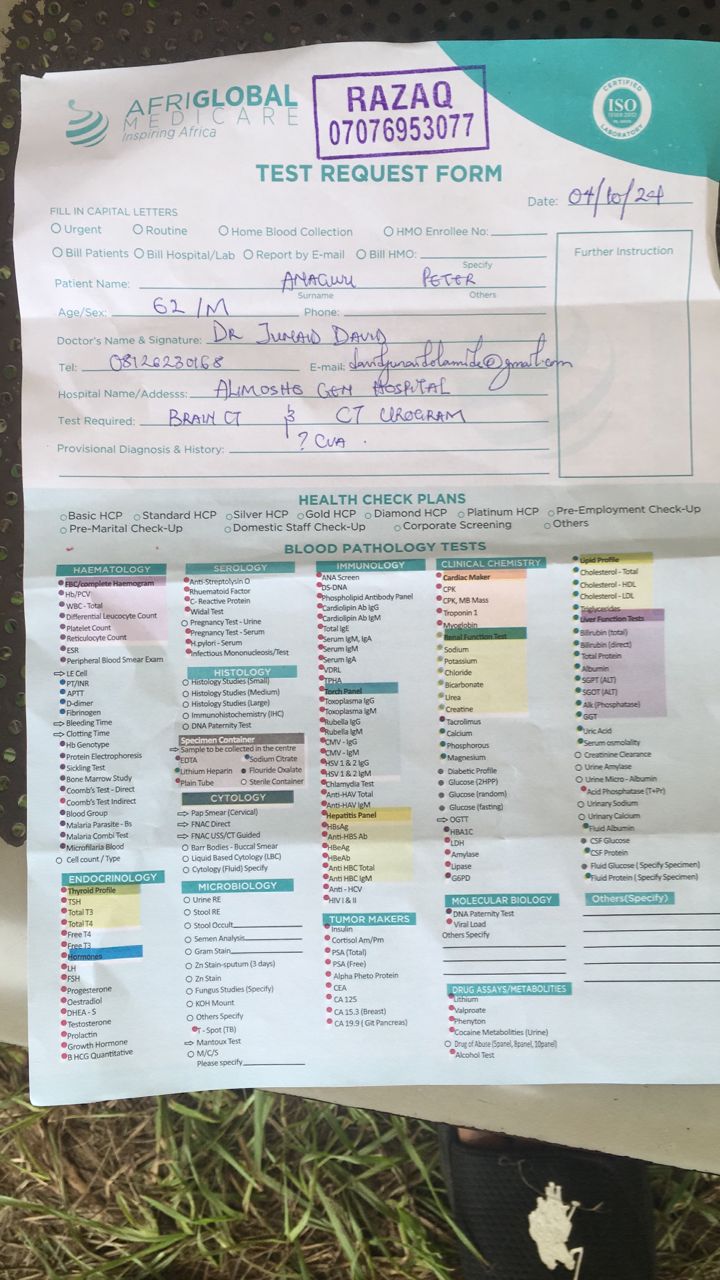 AFRIGLOBAL
MEDICARE
Inspiring Africa
RAZAQ
07076953077
CERTIFIED
ISO
LABORATORY
TEST REQUEST FORM
Date: 04/10/24
FILL IN CAPITAL LETTERS
Urgent Routine Home Blood Collection HMO Enrollee No:
Bill Patients Bill Hospital/Lab Report by E-mail Bill HMO:
Specify
Further Instruction
Patient Name: ANAGWU PETER
Surname Others
Age/Sex: 62/M Phone:
Doctor's Name & Signature: DR JUNAID DAVID
Tel: 08126230168 E-mail: davidjunaidolamide@gmail.com
Hospital Name/Addesss: ALIMOSHO GEN HOSPITAL
Test Required: BRAIN CT & CT UROGRAM
Provisional Diagnosis & History: ? CVA.
HEALTH CHECK PLANS
Basic HCP Standard HCP Silver HCP Gold HCP Diamond HCP Platinum HCP Pre-Employment Check-Up
Pre-Marital Check-Up Domestic Staff Check-Up Corporate Screening Others
BLOOD PATHOLOGY TESTS
HAEMATOLOGY
FBC/complete Haemogram
Hb/PCV
WBC - Total
Differential Leucocyte Count
Platelet Count
Reticulocyte Count
ESR
Peripheral Blood Smear Exam
LE Cell
PT/INR
APTT
D-dimer
Fibrinogen
Bleeding Time
Clotting Time
Hb Genotype
Protein Electrophoresis
Sickling Test
Bone Marrow Study
Coomb's Test - Direct
Coomb's Test Indirect
Blood Group
Malaria Parasite - Bs
Malaria Combi Test
Microfilaria Blood
Cell count / Type
ENDOCRINOLOGY
Thyroid Profile
TSH
Total T3
Total T4
Free T4
Free T3
Hormones
LH
FSH
Progesterone
Oestradiol
DHEA - S
Testosterone
Prolactin
Growth Hormone
B HCG Quantitative
SEROLOGY
Anti-Streptolysin O
Rhuematoid Factor
C- Reactive Protein
Widal Test
Pregnancy Test - Urine
Pregnancy Test - Serum
H.pylori - Serum
Infectious Mononucleosis/Test
HISTOLOGY
Histology Studies (Small)
Histology Studies (Medium)
Histology Studies (Large)
Immunohistochemistry (IHC)
DNA Paternity Test
Specimen Container
Sample to be collected in the centre
EDTA Sodium Citrate
Lithium Heparin Flouride Oxalate
Plain Tube Sterile Container
CYTOLOGY
Pap Smear (Cervical)
FNAC Direct
FNAC USS/CT Guided
Barr Bodies - Buccal Smear
Liquid Based Cytology (LBC)
Cytology (Fluid) Specify
MICROBIOLOGY
Urine RE
Stool RE
Stool Occult
Semen Analysis
Gram Stain
Zn Stain-sputum (3 days)
Zn Stain
Fungus Studies (Specify)
KOH Mount
Others Specify
T - Spot (TB)
Mantoux Test
M/C/S
Please specify
IMMUNOLOGY
ANA Screen
DS-DNA
Phospholipid Antibody Panel
Cardiolipin Ab IgG
Cardiolipin Ab IgM
Total IgE
Serum IgM, IgA
Serum IgM
Serum IgA
VDRL
TPHA
Torch Panel
Toxoplasma IgG
Toxoplasma IgM
Rubella IgG
Rubella IgM
CMV - IgG
CMV - IgM
HSV 1 & 2 IgG
HSV 1 & 2 IgM
Chlamydia Test
Anti-HAV Total
Anti-HAV IgM
Hepatitis Panel
HBsAg
Anti-HBS Ab
HBeAg
HBeAb
Anti HBC Total
Anti HBC IgM
Anti - HCV
HIV I & II
TUMOR MAKERS
Insulin
Cortisol Am/Pm
PSA (Total)
PSA (Free)
Alpha Pheto Protein
CEA
CA 125
CA 15.3 (Breast)
CA 19.9 ( Git Pancreas)
CLINICAL CHEMISTRY
Cardiac Maker
CPK
CPK, MB Mass
Troponin 1
Myoglobin
Renal Function Test
Sodium
Potassium
Chloride
Bicarbonate
Urea
Creatine
Tacrolimus
Calcium
Phosphorous
Magnesium
Diabetic Profile
Glucose (2HPP)
Glucose (random)
Glucose (fasting)
OGTT
HBA1C
LDH
Amylase
Lipase
G6PD
MOLECULAR BIOLOGY
DNA Paternity Test
Viral Load
Others Specify
DRUG ASSAYS/METABOLITIES
Lithium
Valproate
Phenyton
Cocaine Metabolities (Urine)
Drug of Abuse (5panel, 8panel, 10panel)
Alcohol Test
Lipid Profile
Cholesterol - Total
Cholesterol - HDL
Cholesterol - LDL
Triglycerides
Liver Function Tests
Bilirubin (total)
Bilirubin (direct)
Total Protein
Albumin
SGPT (ALT)
SGOT (ALT)
Alk (Phosphatase)
GGT
Uric Acid
Serum osmolality
Creatinine Clearance
Urine Amylase
Urine Micro - Albumin
Acid Phosphatase (T+Pr)
Urinary Sodium
Urinary Calcium
Fluid Albumin
CSF Glucose
CSF Protein
Fluid Glucose ( Specify Specimen)
Fluid Protein ( Specify Specimen)
Others(Specify)